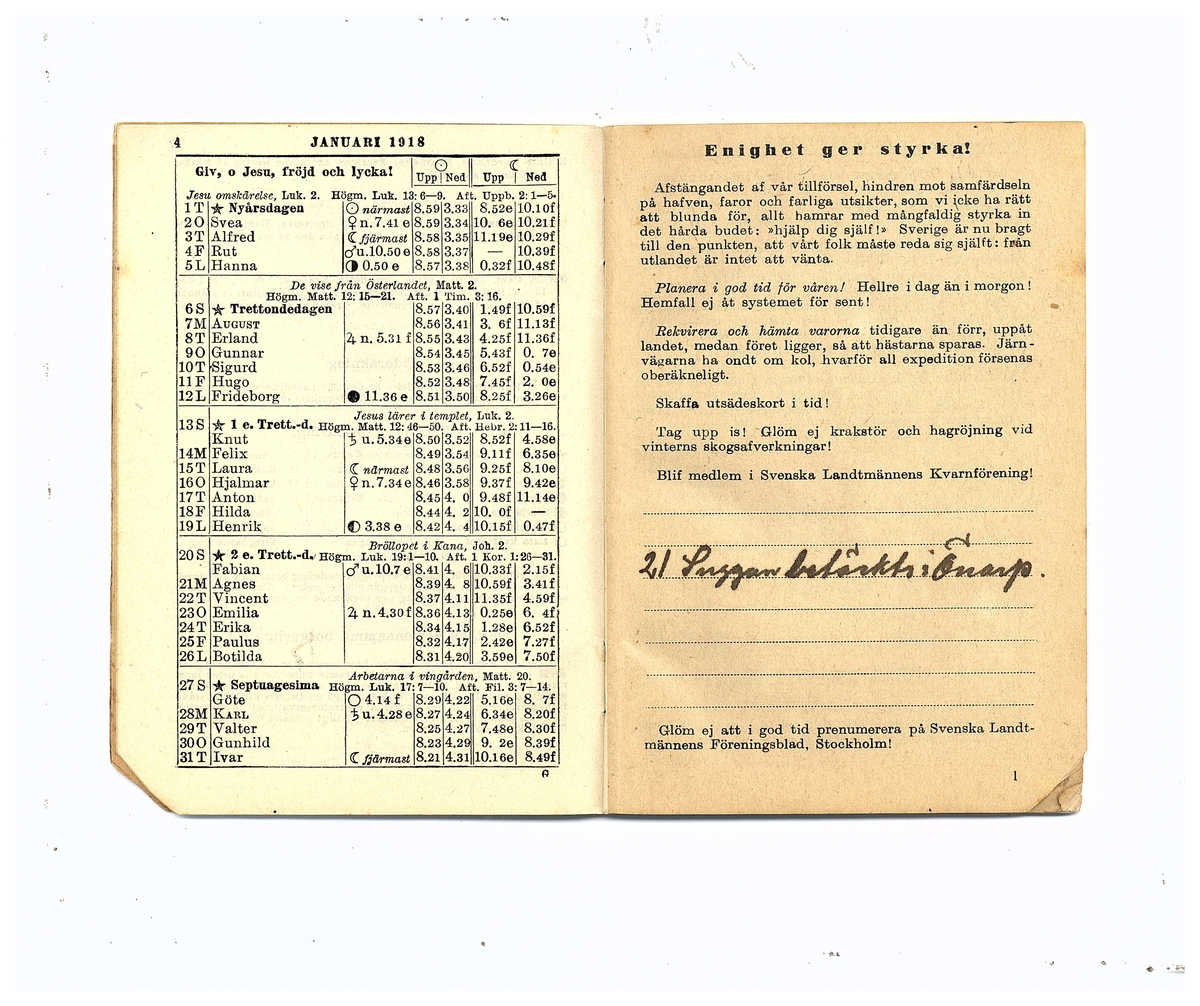 4 JANUARI 1918
Giv, o Jesu, fröjd och lycka! ☉ ☾
Upp Ned Upp Ned
Jesu omskärelse, Luk. 2. Högm. Luk. 13: 6—9. Aft. Uppb. 2: 1—5.
1 T ★ Nyårsdagen ☉ närmast 8.59 3.33 8.52e 10.10f
2 O Svea ♀ n. 7.41 e 8.59 3.34 10. 6e 10.21f
3 T Alfred ☾ fjärmast 8.58 3.35 11.19e 10.29f
4 F Rut ♂ u. 10.50 e 8.58 3.37 — 10.39f
5 L Hanna ◑ 0.50 e 8.57 3.38 0.32f 10.48f
De vise från Österlandet, Matt. 2.
Högm. Matt. 12: 15—21. Aft. 1 Tim. 3: 16.
6 S ★ Trettondedagen 8.57 3.40 1.49f 10.59f
7 M AUGUST 8.56 3.41 3. 6f 11.13f
8 T Erland ♃ n. 5.31 f 8.55 3.43 4.25f 11.36f
9 O Gunnar 8.54 3.45 5.43f 0. 7e
10 T Sigurd 8.53 3.46 6.52f 0.54e
11 F Hugo 8.52 3.48 7.45f 2. 0e
12 L Frideborg ● 11.36 e 8.51 3.50 8.25f 3.26e
Jesus lärer i templet, Luk. 2.
13 S ★ 1 e. Trett.-d. Högm. Matt. 12: 46—50. Aft. Hebr. 2: 11—16.
Knut ♄ u. 5.34e 8.50 3.52 8.52f 4.58e
14 M Felix 8.49 3.54 9.11f 6.35e
15 T Laura ☾ närmast 8.48 3.56 9.25f 8.10e
16 O Hjalmar ♀ n. 7.34 e 8.46 3.58 9.37f 9.42e
17 T Anton 8.45 4. 0 9.48f 11.14e
18 F Hilda 8.44 4. 2 10. 0f —
19 L Henrik ◐ 3.38 e 8.42 4. 4 10.15f 0.47f
Bröllopet i Kana, Joh. 2.
20 S ★ 2 e. Trett.-d. Högm. Luk. 19: 1—10. Aft. 1 Kor. 1: 26—31.
Fabian ♂ u. 10.7 e 8.41 4. 6 10.33f 2.15f
21 M Agnes 8.39 4. 8 10.59f 3.41f
22 T Vincent 8.37 4.11 11.35f 4.59f
23 O Emilia ♃ n. 4.30 f 8.36 4.13 0.25e 6. 4f
24 T Erika 8.34 4.15 1.28e 6.52f
25 F Paulus 8.32 4.17 2.42e 7.27f
26 L Botilda 8.31 4.20 3.59e 7.50f
Arbetarna i vingården, Matt. 20.
27 S ★ Septuagesima Högm. Luk. 17: 7—10. Aft. Fil. 3: 7—14.
Göte ○ 4.14 f 8.29 4.22 5.16e 8. 7f
28 M KARL ♄ u. 4.28 e 8.27 4.24 6.34e 8.20f
29 T Valter 8.25 4.27 7.48e 8.30f
30 O Gunhild 8.23 4.29 9. 2e 8.39f
31 T Ivar ☾ fjärmast 8.21 4.31 10.16e 8.49f
6
Enighet ger styrka!
Afstängandet af vår tillförsel, hindren mot samfärdseln
på hafven, faror och farliga utsikter, som vi icke ha rätt
att blunda för, allt hamrar med mångfaldig styrka in
det hårda budet: »hjälp dig själf!» Sverige är nu bragt
till den punkten, att vårt folk måste reda sig själft: från
utlandet är intet att vänta.
Planera i god tid för våren! Hellre i dag än i morgon!
Hemfall ej åt systemet för sent!
Rekvirera och hämta varorna tidigare än förr, uppåt
landet, medan föret ligger, så att hästarna sparas. Järn-
vägarna ha ondt om kol, hvarför all expedition försenas
oberäkneligt.
Skaffa utsädeskort i tid!
Tag upp is! Glöm ej krakstör och hagröjning vid
vinterns skogsafverkningar!
Blif medlem i Svenska Landtmännens Kvarnförening!
21 Suggan betäckts i Önarp.
Glöm ej att i god tid prenumerera på Svenska Landt-
männens Föreningsblad, Stockholm!
1